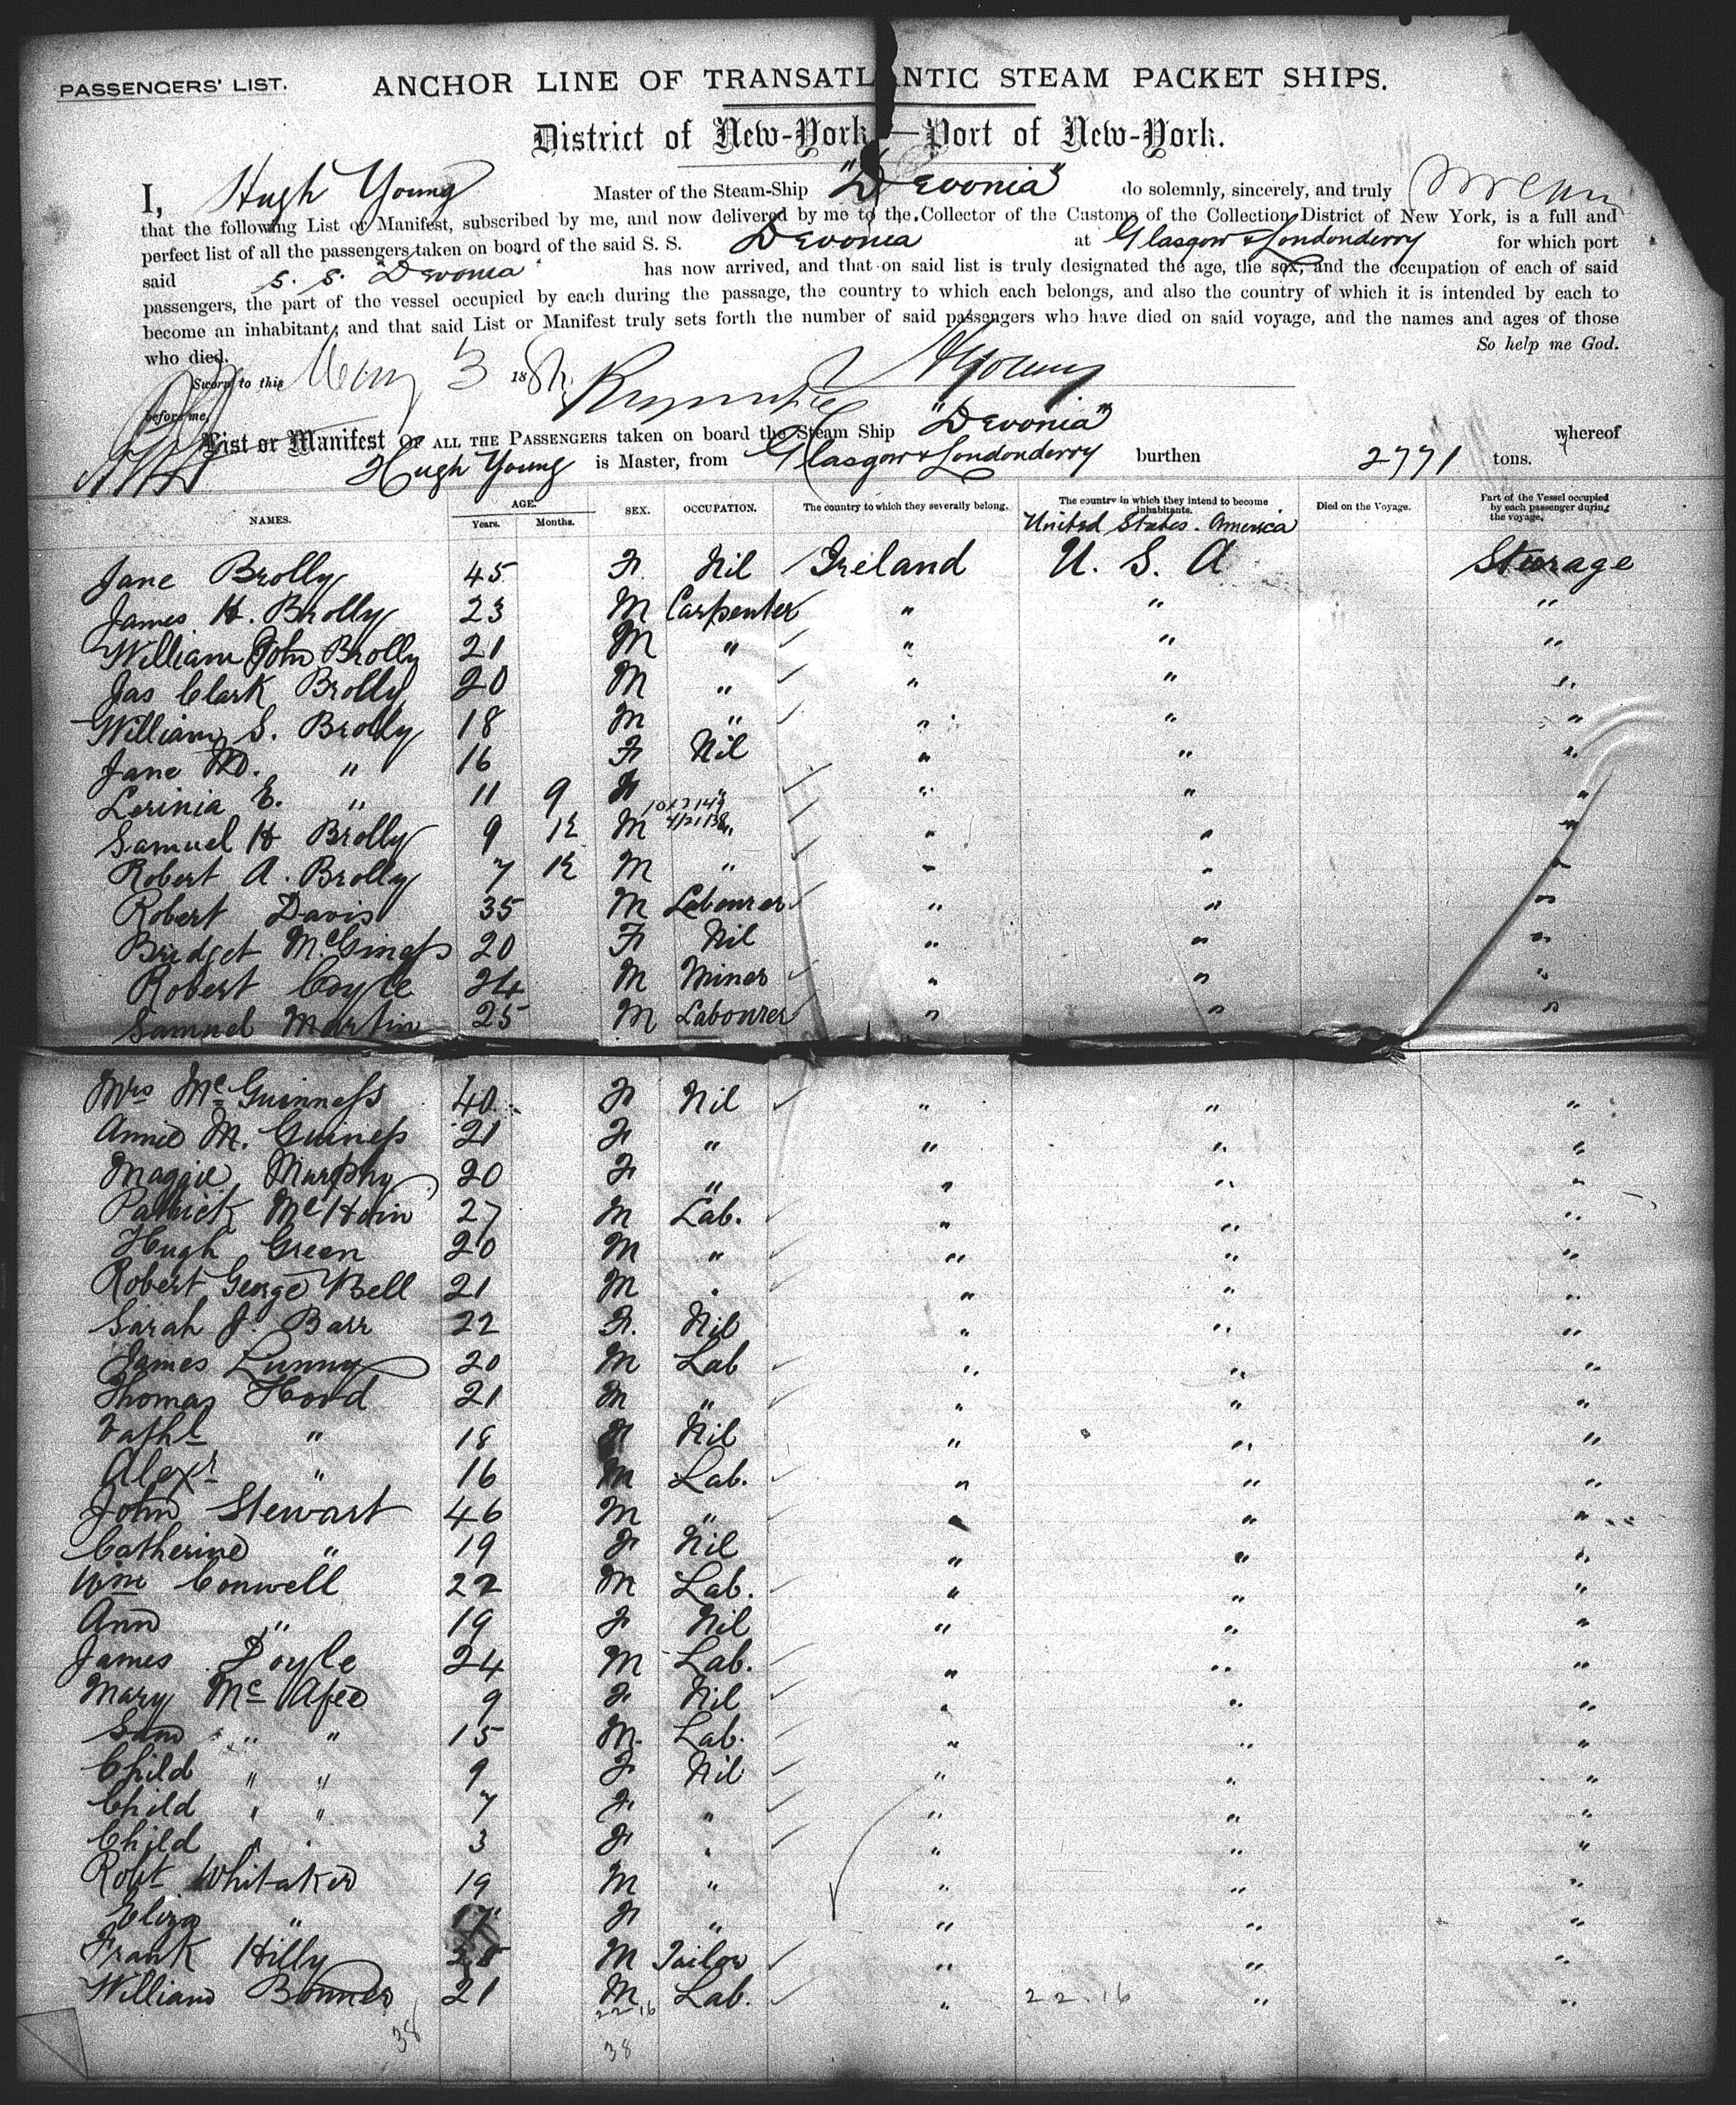 PASSENGERS' LIST.
ANCHOR LINE OF TRANSATLANTIC STEAM PACKET SHIPS.
District of New-York—Port of New-York.
I, Hugh Young Master of the Steam-Ship "Devonia" do solemnly, sincerely, and truly swear
that the following List or Manifest, subscribed by me, and now delivered by me to the Collector of the Customs of the Collection District of New York, is a full and
perfect list of all the passengers taken on board of the said S. S. Devonia at Glasgow & Londonderry for which port
said S. S. "Devonia" has now arrived, and that on said list is truly designated the age, the sex, and the occupation of each of said
passengers, the part of the vessel occupied by each during the passage, the country to which each belongs, and also the country of which it is intended by each to
become an inhabitant; and that said List or Manifest truly sets forth the number of said passengers who have died on said voyage, and the names and ages of those
who died. So help me God.
Sworn to this May 3 18 HYoung
before me,
List or Manifest OF ALL THE PASSENGERS taken on board the Steam Ship "Devonia" whereof
Hugh Young is Master, from Glasgow & Londonderry burthen 2771 tons.
NAMES. AGE. Years. Months. SEX. OCCUPATION. The country to which they severally belong. The country in which they intend to become inhabitants. Died on the Voyage. Part of the Vessel occupied by each passenger during the voyage.
United States. America
Jane Brolly 45 F. Nil Ireland U. S. A Steerage
James H. Brolly 23 M Carpenter " " "
William John Brolly 21 M " " " "
Jas Clark Brolly 20 M " " " "
William S. Brolly 18 M " " " "
Jane M. " 16 F Nil " " "
Lerinia E. " 11 9 F " " " "
Samuel H Brolly 9 M " " " "
Robert A. Brolly 7 M " " " "
Robert Davis 35 M Labourer " " "
Bridget McGiness 20 F Nil " " "
Robert Coyle 24 M Miner " " "
Samuel Martin 25 M Labourer " " "
Mrs Mc Guinness 40 F Nil " " "
Annie M. Guiness 21 F " " " "
Maggie Murphy 20 F " " " "
Patrick Mc 27 M Lab. " " "
Hugh Green 20 M " " " "
Robert George Bell 21 M " " " "
Sarah J. Barr 22 F. Nil " " "
James Lunny 20 M Lab " " "
Thomas Hood 21 M " " " "
" 18 F Nil " " "
Alexr " 16 M Lab. " " "
John Stewart 46 M " " " "
Catherine " 19 F Nil " " "
Wm Conwell 22 M Lab. " " "
Ann " 19 F Nil " " "
James Doyle 24 M Lab. " " "
Mary Mc Afee 9 F Nil " " "
Sam " " 15 M. Lab. " " "
Child " " 9 F Nil " " "
Child " " 7 F " " " "
Child " " 3 F " " " "
Robt Whitaker 19 M " " " "
Eliza " 17 F " " " "
Frank Hilly M Tailor " " "
William Bonner 21 M Lab. " " "
22 16 22.16
38 38